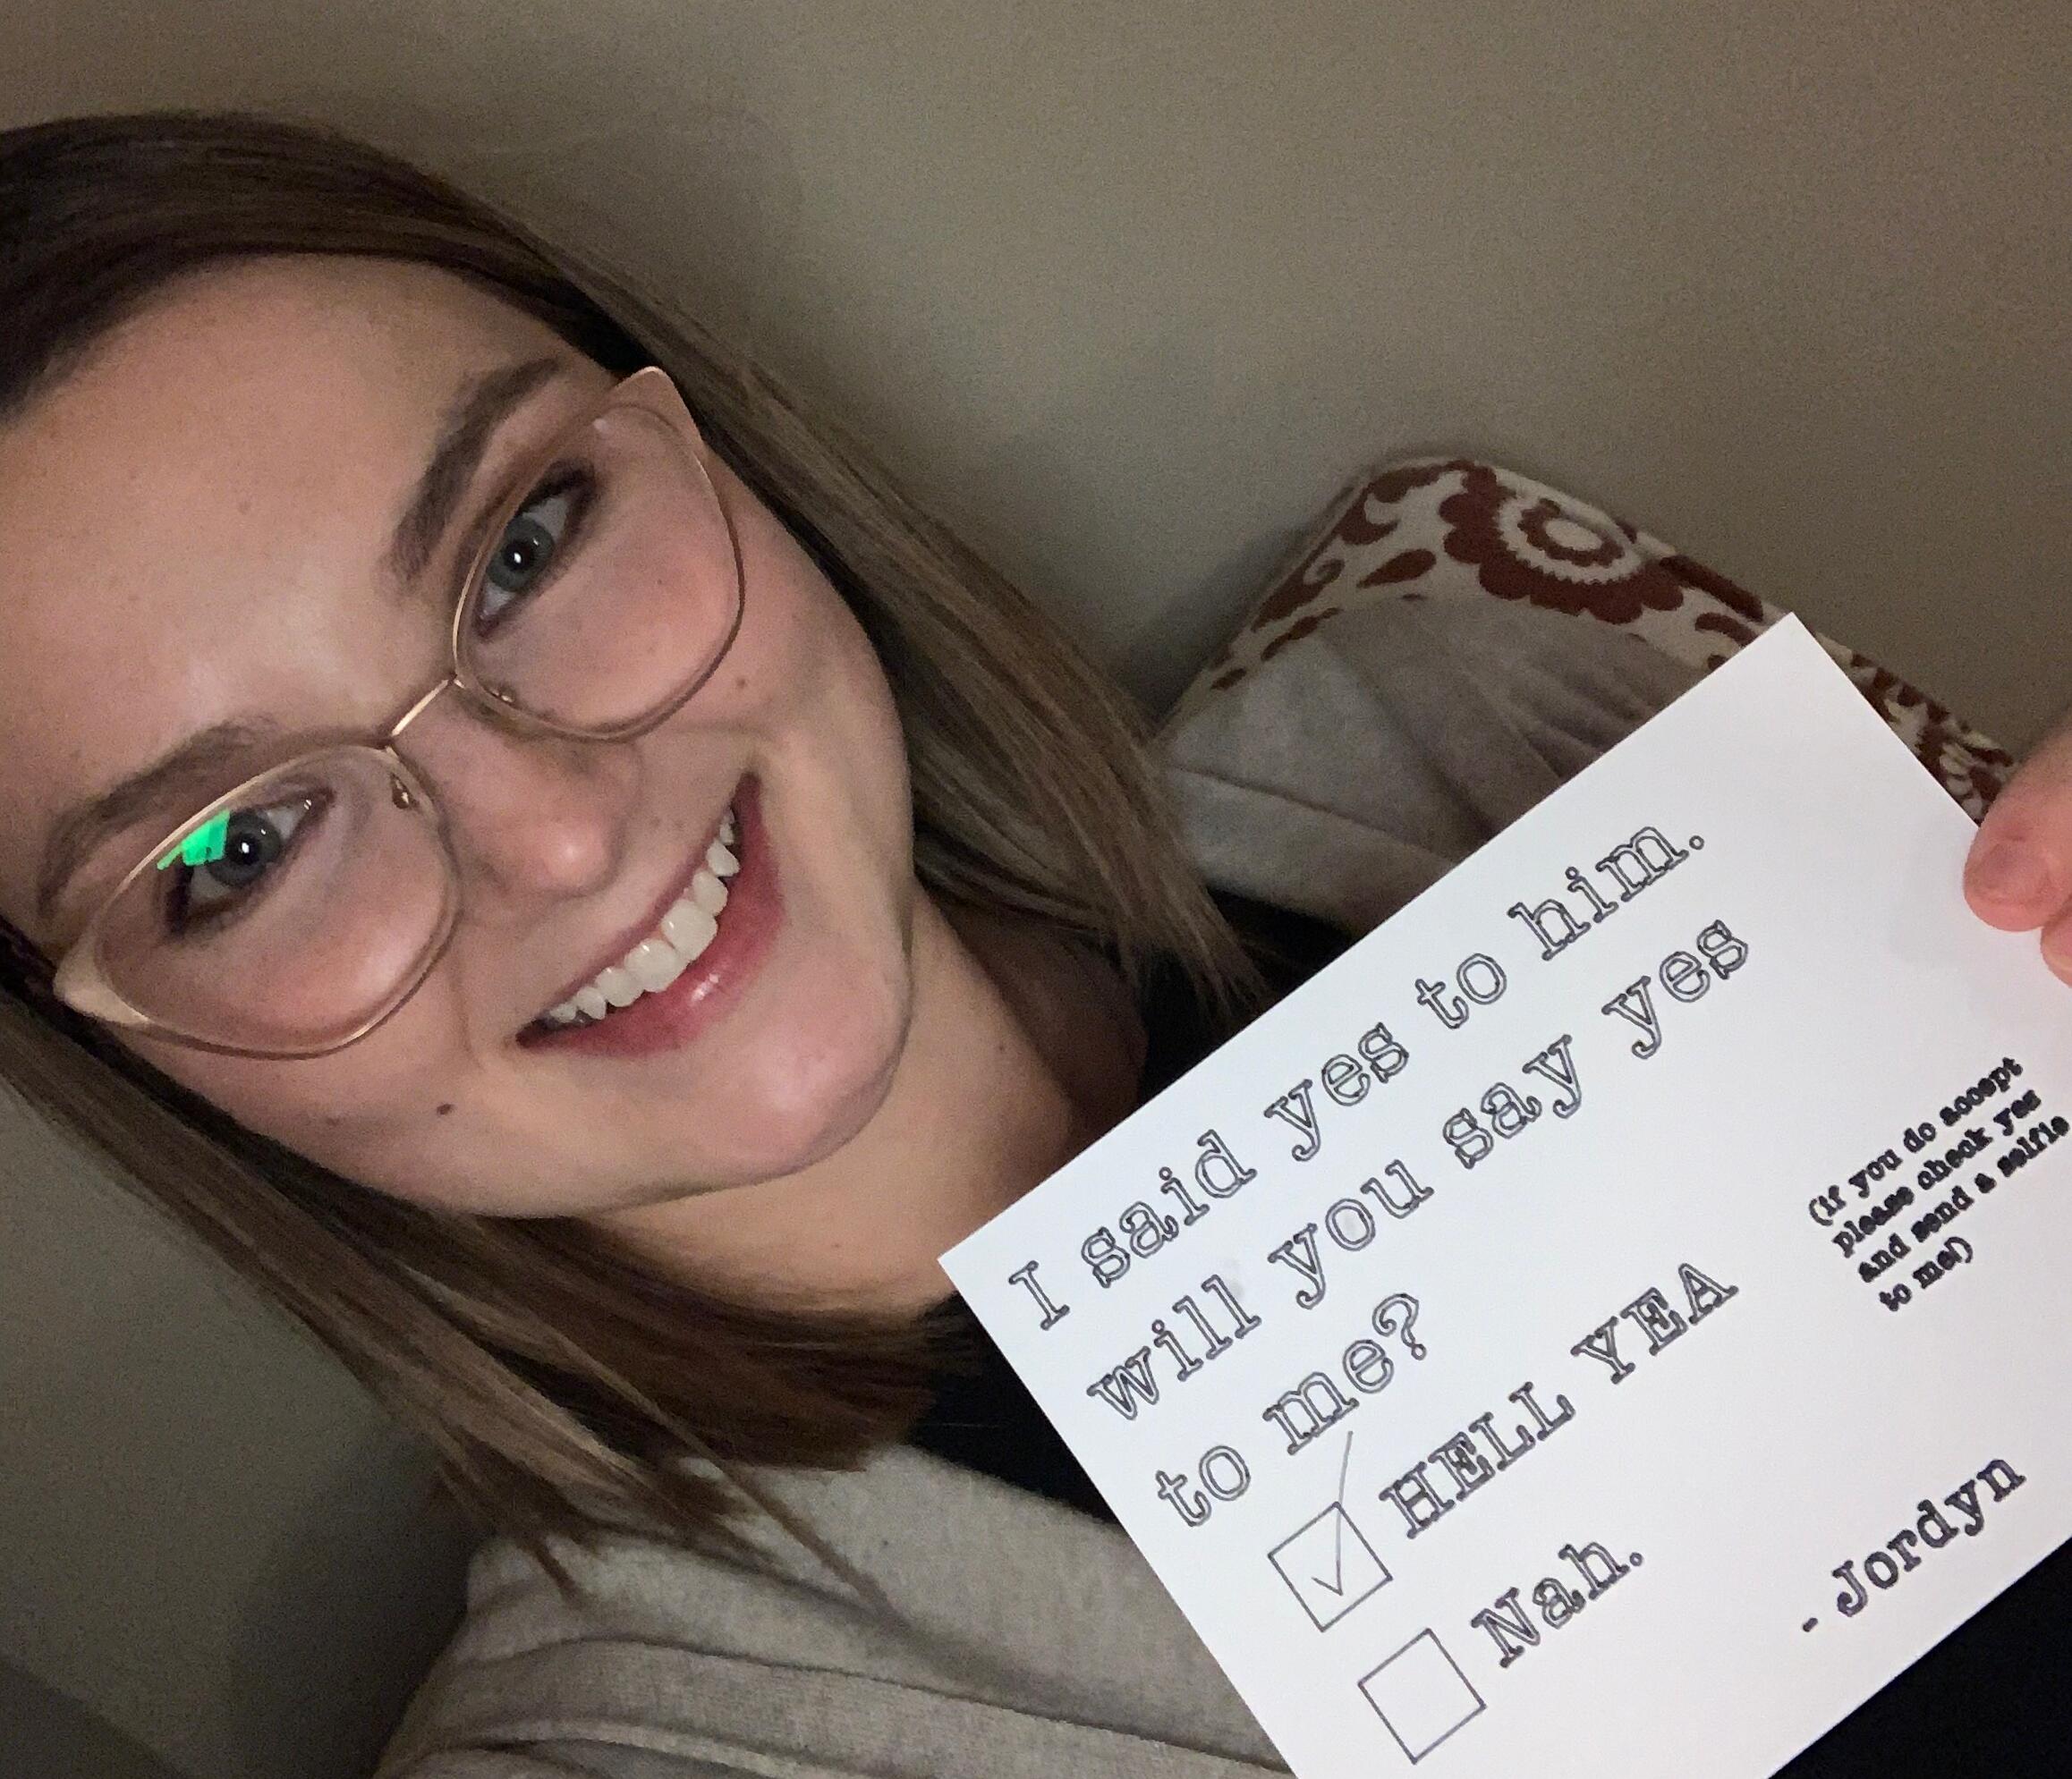 I said yes to him.
will you say yes
to me?
HELL YEA
Nah.
(if you do accept
please check yes
and send a selfie
to me!)
- Jordyn